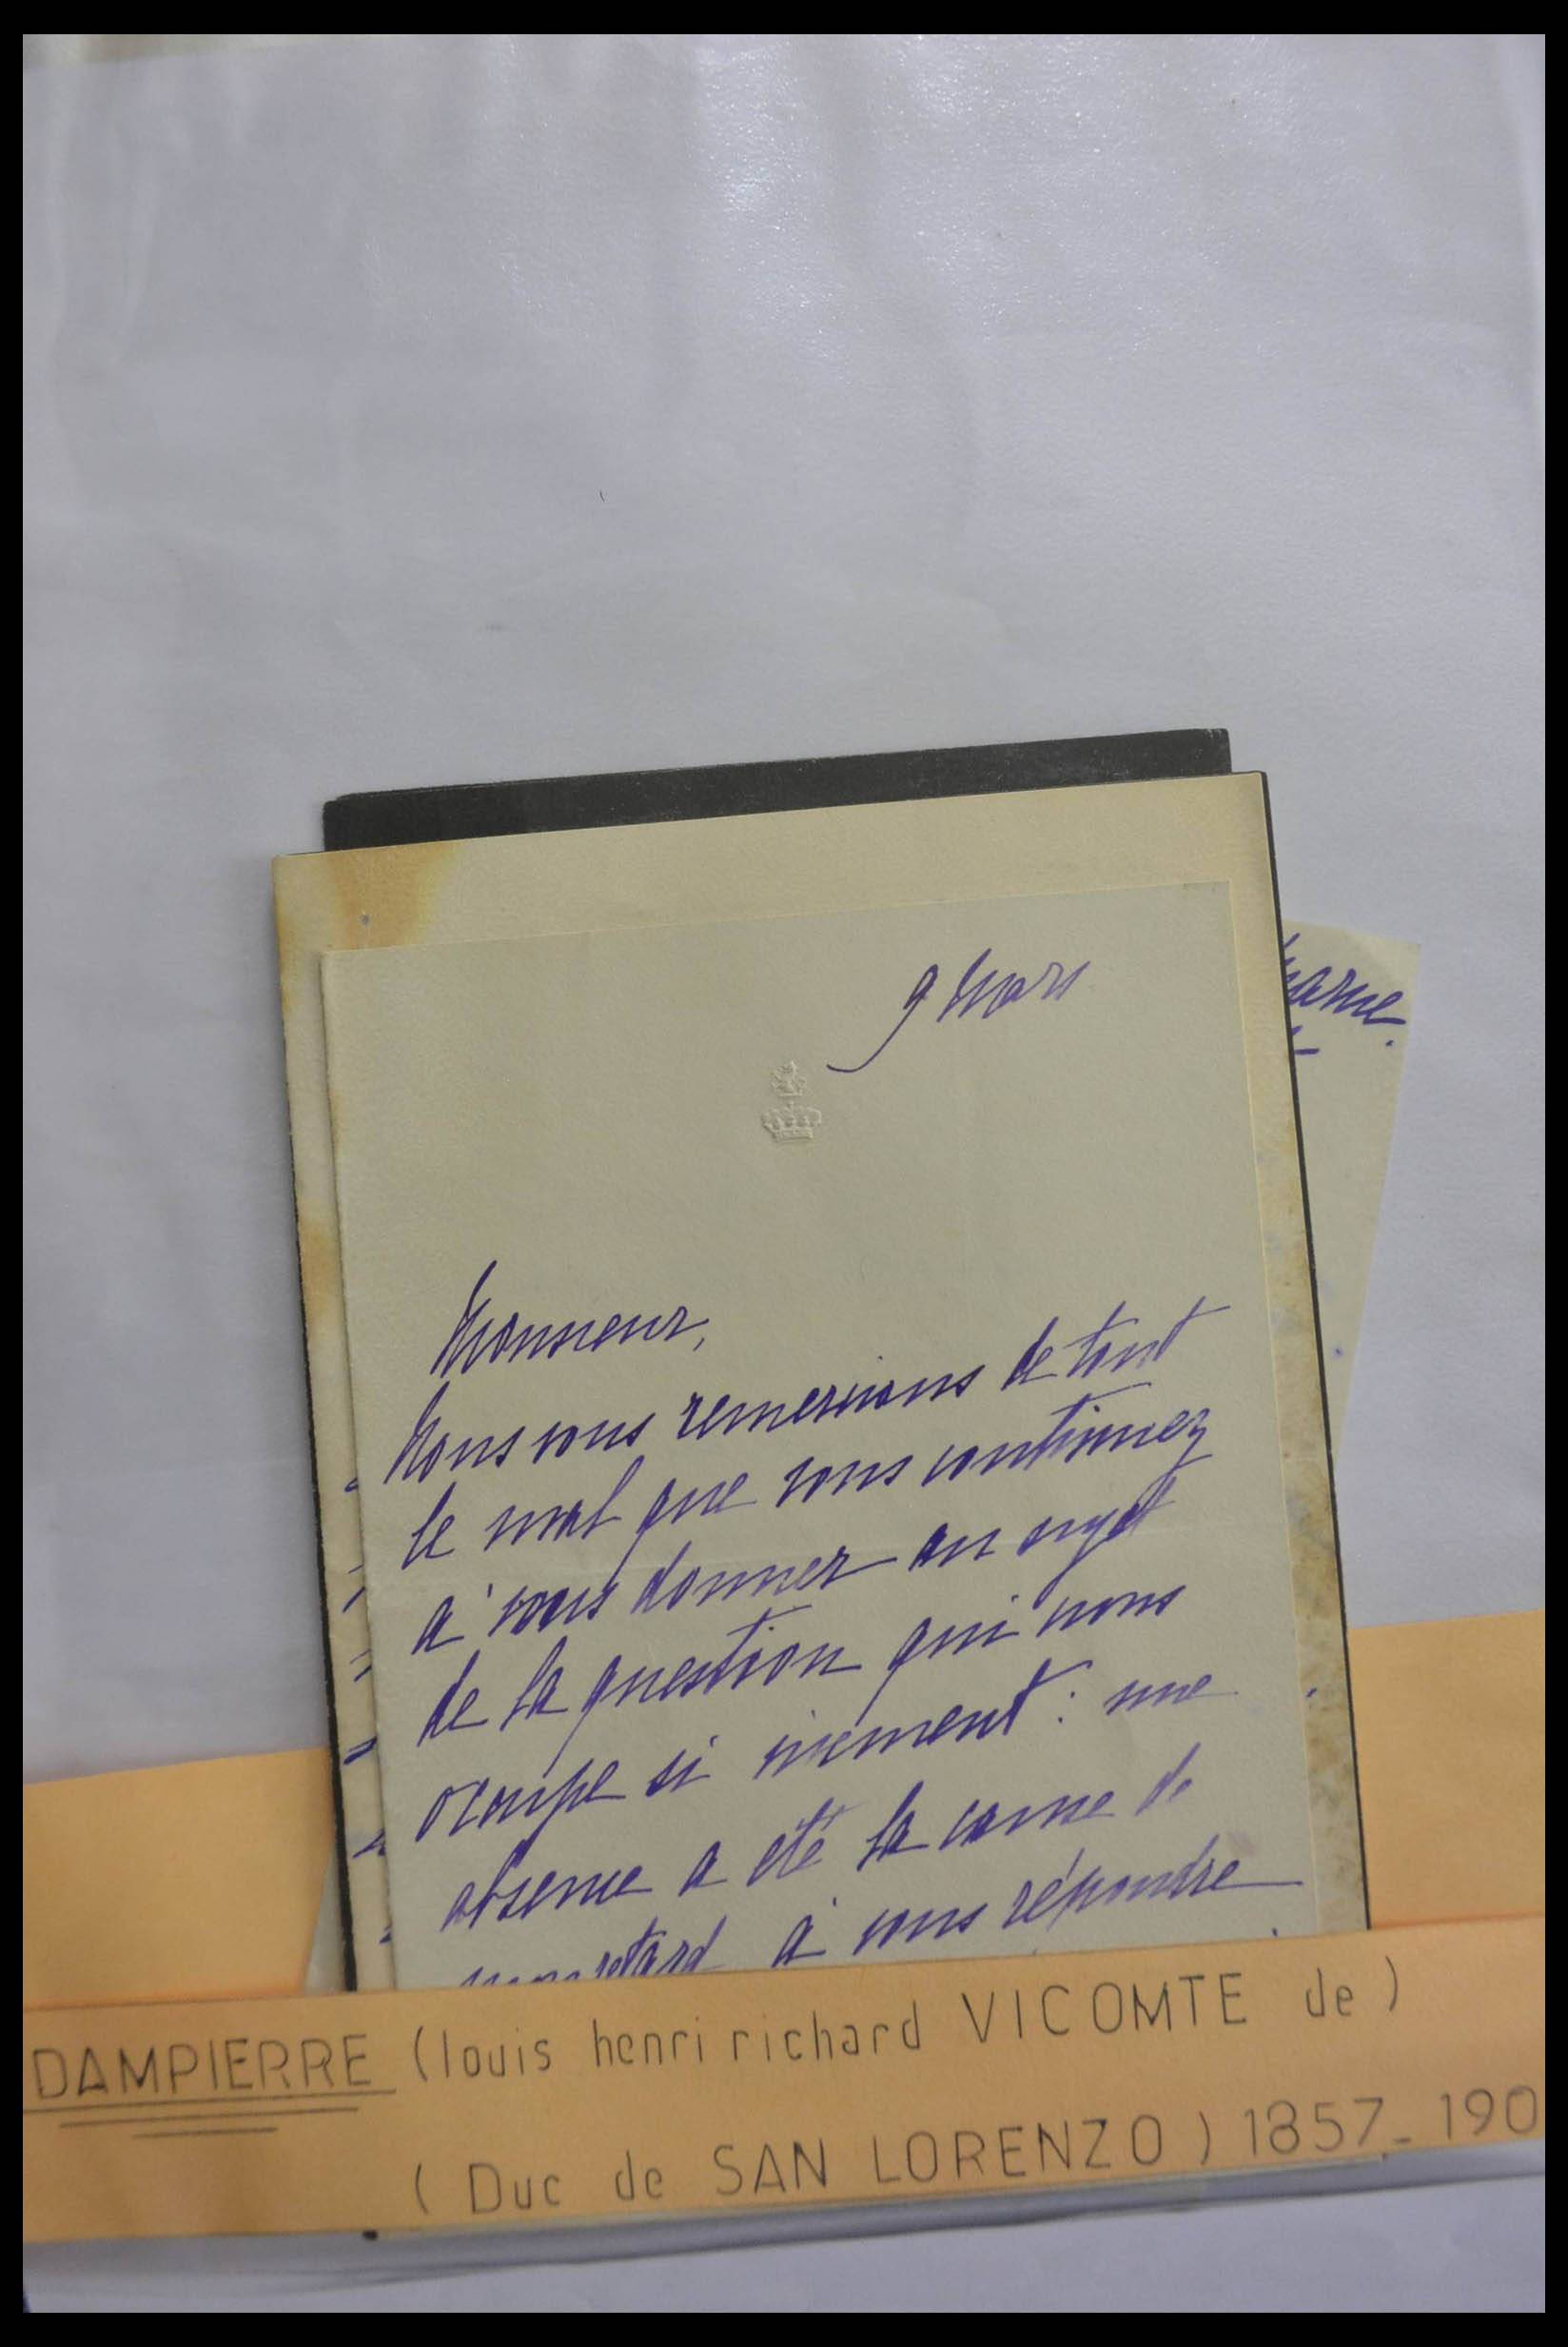 9 Mars
Monsieur,
Nous vous remercions de tout
le mal que vous continuez
à vous donner au sujet
de la question qui nous
occupe si vivement : une
absence a été la cause de
retard à vous répondre
DAMPIERRE (louis henri richard VICOMTE de)
(Duc de SAN LORENZO) 1857_190